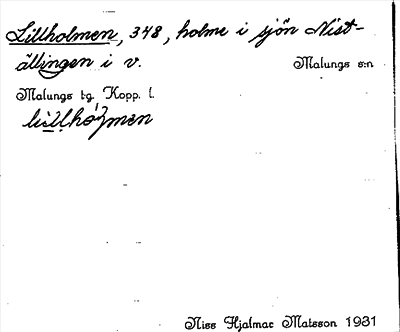 Lillholmen, 348, holme i sjön Nist-
ällingen i v. Malungs s:n
Malungs tg. Kopp. l.
Niss Hjalmar Matsson 1931